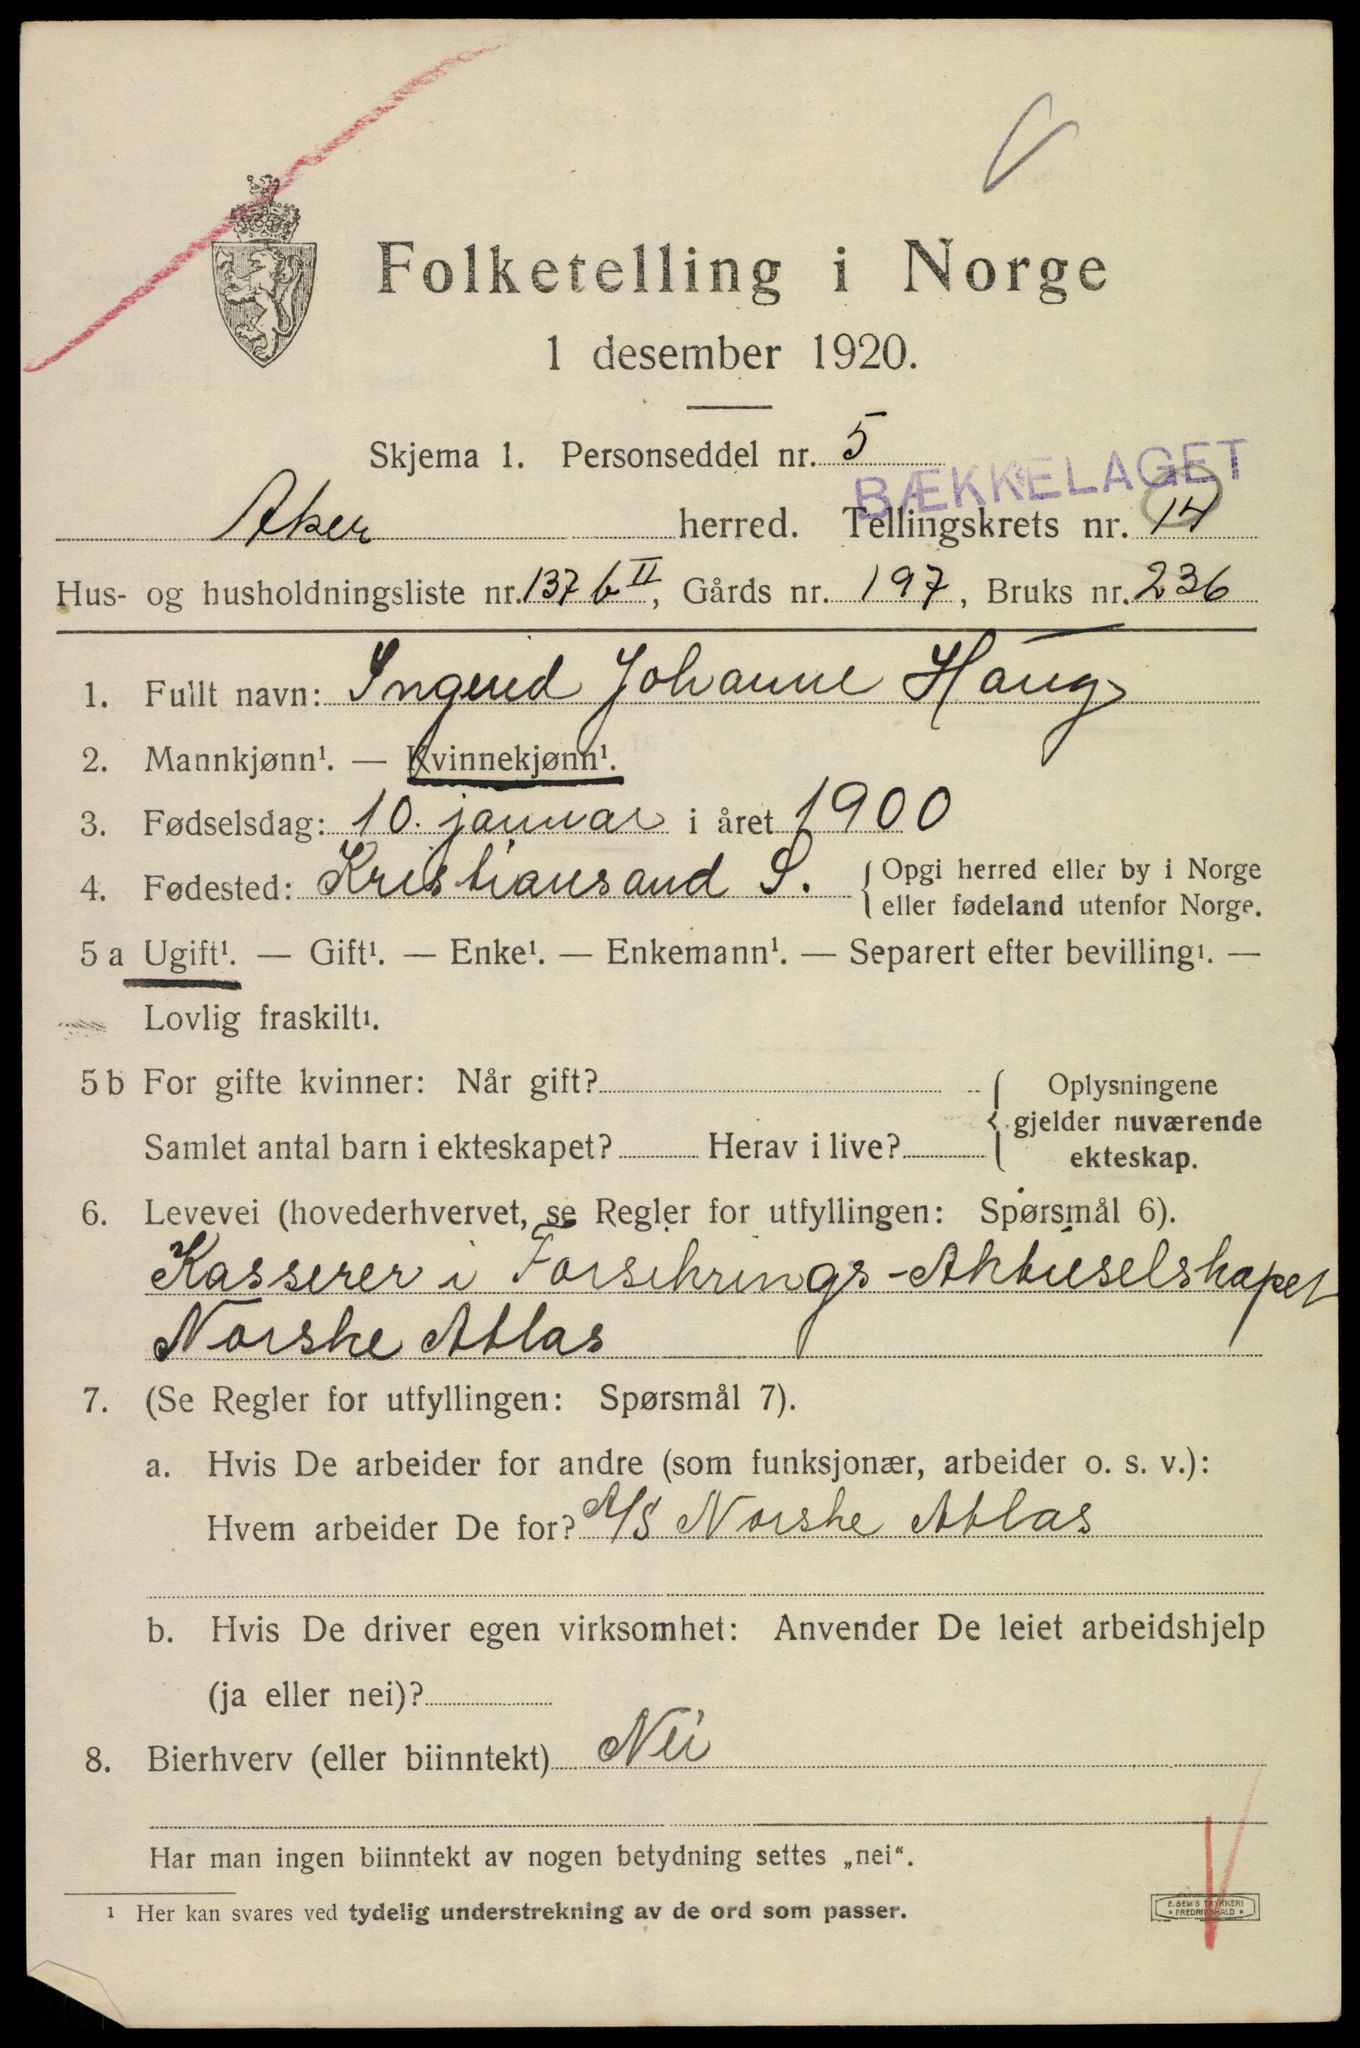 Folketelling i Norge
1 desember 1920.
Skjema 1. Personseddel nr. 5
BÆKKELAGET
Aker herred. Tellingskrets nr. 14
Hus- og husholdningsliste nr. 137 b II, Gårds nr. 197, Bruks nr. 236
1. Fullt navn: Ingerid Johanne Haug
2. Mannkjønn¹. — Kvinnekjønn¹.
3. Fødselsdag: 10. januar i året 1900
4. Fødested: Kristiansand S. { Opgi herred eller by i Norge
eller fødeland utenfor Norge.
5 a Ugift¹. — Gift¹. — Enke¹. — Enkemann¹. — Separert efter bevilling¹. —
Lovlig fraskilt¹.
5 b For gifte kvinner: Når gift? { Oplysningene
gjelder nuværende
Samlet antal barn i ekteskapet? Herav i live? ekteskap.
6. Levevei (hovederhvervet, se Regler for utfyllingen: Spørsmål 6).
Kasserer i Forsikrings-Aktieselskapet
Norske Atlas
7. (Se Regler for utfyllingen: Spørsmål 7).
a. Hvis De arbeider for andre (som funksjonær, arbeider o. s. v.):
Hvem arbeider De for? A/S Norske Atlas
b. Hvis De driver egen virksomhet: Anvender De leiet arbeidshjelp
(ja eller nei)?
8. Bierhverv (eller biinntekt) Nei
Har man ingen biinntekt av nogen betydning settes „nei".
¹ Her kan svares ved tydelig understrekning av de ord som passer.
E. SEM'S TRYKKERI
* FREDRIKSHALD *